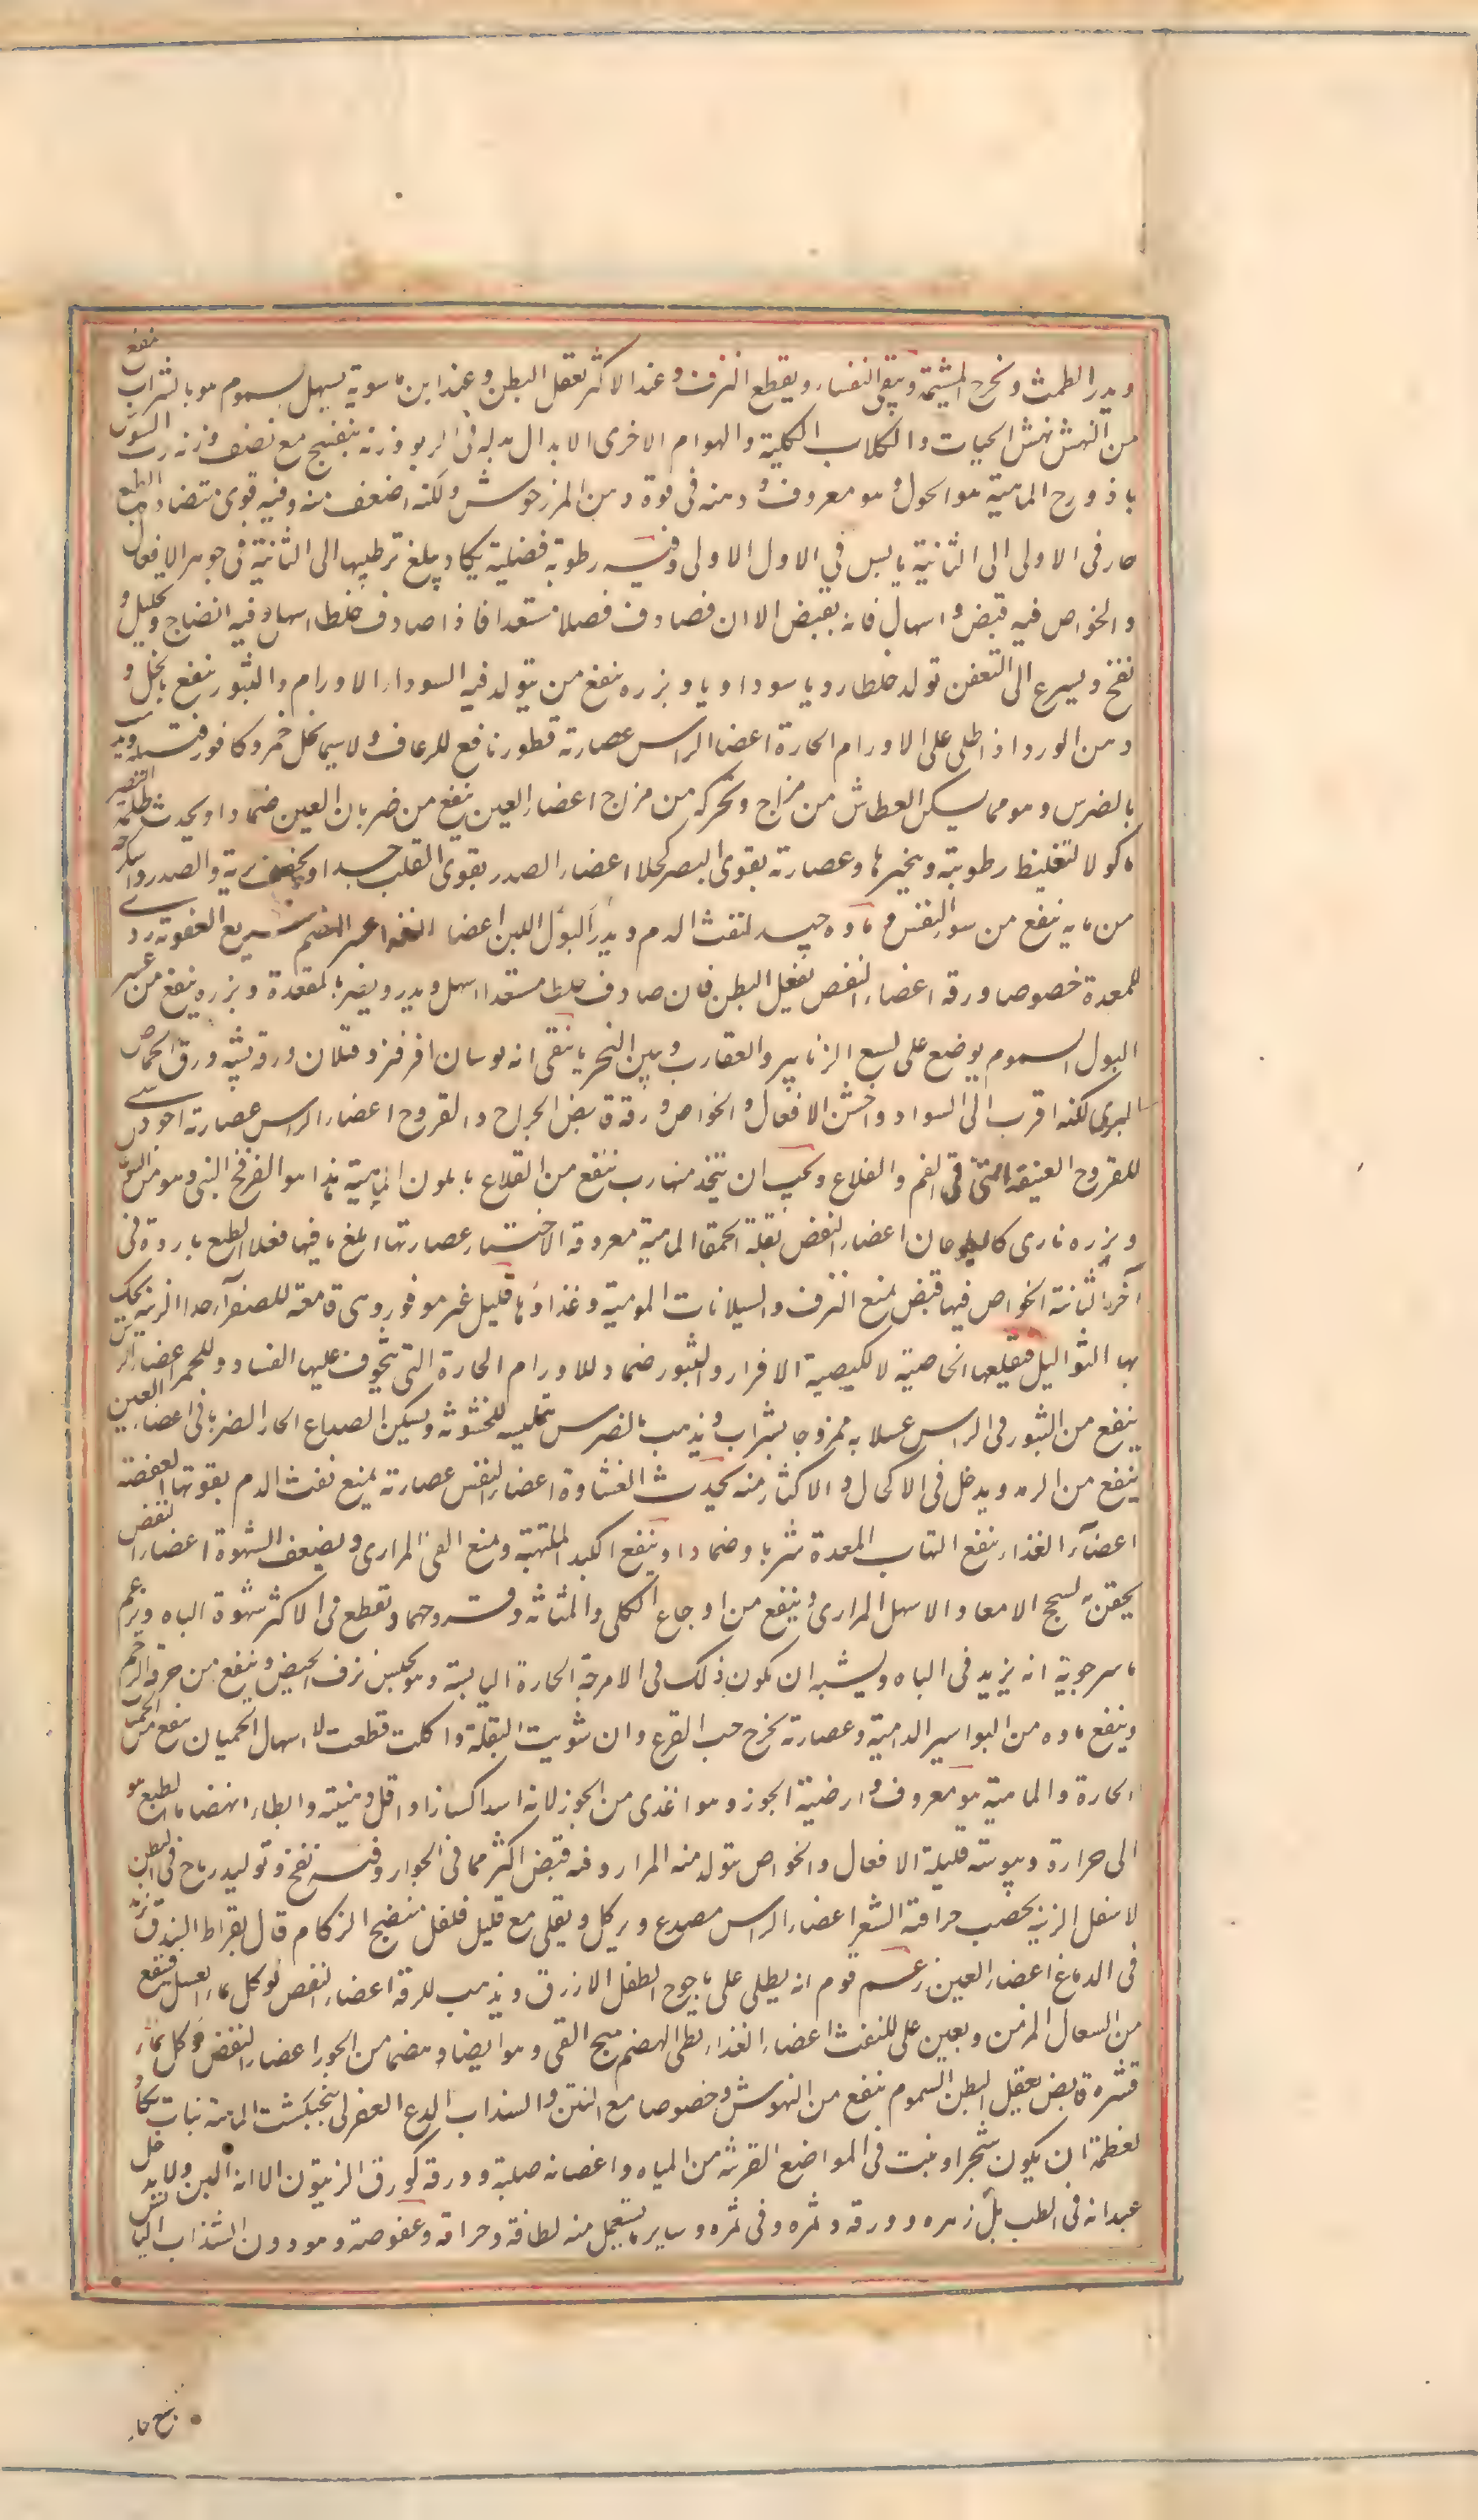 ويدر الطمث ويخرج المشيمة وينقى النفساء ويقطع النزف وعند الاكثر يعقل البطن وعند ابن ماسويه يسهل السموم هو بالشراب ينفع
من النهش نهش الحيات والكلاب الكلبة والهوام الاخرى الابدال بدله فى الربو وزنه بنفسج مع نصف وزنه رب السوس
باذروج الماهية هو الحوك وهو معروف ودهنه فى قوة دهن المرزجوش ولكنه اضعف منه وفيه قوى متضادة الطبع
حار فى الاولى الى الثانية يابس في الاول الاولى وفيه رطوبة فضلية يكاد يبلغ ترطيبها الى الثانية فى جوهر الافعال
والخواص فيه قبض واسهال فانه يقبض الا ان فصادف فصلا مستعدا فاذا صادف خلطا اسهل وفيه انضاج وتحليل و
نفخ ويسرع الى التعفن تولد خلطا رديا سوداويا وبزره ينفع من يتولد فيه السوداء الاورام والبثور ينفع بالخل و
دهن الورد اذا طلى على الاورام الحارة اعضا الراس عصارته قطور نافع للرعاف ولا سيما بخل خمر وكافور فتيلة ويذهب
بالضرس وهو مما يسكن العطاس من مزاج وتحركه من مزاج اعضاء العين ينفع من ضربان العين ضمادا ويحدث ظلمة البصر
ماكولا لتغليظ رطوبته وتبخيرها وعصارته يقوى البصر كحلا اعضاء الصدر يقوى القلب جدا ويجفف الرية والصدر واسكرجه
من مايه ينفع من سو التنفس وماوه جيد لنفث الدم ويدر اللبن اعضا الغذا عسر الهضم سريع العفونة ردى
للمعدة خصوصا ورقه اعضاء النفض يعقل البطن فان صادف خلطا مستعدا اسهل ويدر ويضر بالمقعدة وبزره ينفع من عسر
البول السموم يوضع على لسع الزنابير والعقارب وتنين البحر ورقه يشبه ورق الحماض
البرى لكنه اقرب الى السواد واخشن الافعال والخواص ورقه قابض الجراح والقروح اعضاء الراس عصارته اجود شى
للقروح العتيقة التى فى الفم والقلاع ويجب ان يتخذ منها رب ينفع من القلاع الماهية هذا هو الفرفخ البرى وهو من
وبزره نارى اعضاء النفض بقلة الحمقا الماهية معروفة الاختيار عصارتها ابلغ ما فيها فعلا الطبع باردة فى
آخر الثانية الخواص فيها قبض يمنع النزف والسيلانات المزمنة وغذاؤها قليل غير موفور وهى قامعة للصفراء جدا الزينة يحك
بها الثواليل فيقلعها لخاصية لا لكيفية الاورام والبثور ضماد للاورام الحارة التى يتخوف عليها الفساد وللحمرة اعضاء الراس
ينفع من البثور فى الراس غسلا به ممزوجا بشراب ويذهب بالضرس بتمليسه للخشونة ويسكن الصداع الحار الضربانى اعضاء العين
ينفع من الرمد ويدخل فى الاكحال والاكثار منه يحدث الغشاوة اعضاء النفس عصارته يمنع نفث الدم بقوتها العفصة
اعضآء الغذاء ينفع التهاب المعدة شربا وضمادا وينفع الكبد الملتهبة ويمنع القى المرارى ويضعف الشهوة اعضاء النفض
يحقن به لسحج الامعاء والاسهال المرارى وينفع من اوجاع الكلى والمثانة وقروحهما وتقطع فى الاكثر شهوة الباه وزعم
ماسرجويه انه يزيد فى الباه ويشبه ان يكون ذلك فى الامزجة الحارة اليابسة وهو يحبس نزف الحيض وينفع من حرقة الرحم
وينفع ماوه من البواسير الدامية وعصارته يخرج حب القرع وان شويت البقلة واكلت قطعت الاسهال الحميات ينفع من الحميات
الحارة الماهية هو معروف وارضية الجوز وهو اغذى من الجوز لانه اشد اكتنازا واقل دهنية وابطاء انهضاما الطبع هو
الى حرارة ويبوسة قليلة الافعال والخواص يتولد منه المرار وفيه قبض اكثر مما فى الجوز وفيه نفخ وتوليد رياح فى البطن
الاسفل الزينة يخضب حراقته الشعر اعضاء الراس مصدع ويوكل ويقلى مع قليل فلفل فينضج الزكام قال بقراط البندق يزيد
فى الدماغ اعضاء العين زعم قوم انه يطلى على يافوخ الطفل الازرق ويذهب الزرقة اعضاء النفس يوكل بماء العسل فينفع
من السعال المزمن ويعين على النفث اعضاء الغذاء بطى الهضم يهيج القى وهو ايضا ابطا هضما من الجوز اعضاء النفض
قشره قابض يعقل البطن السموم ينفع من النهوش وخصوصا مع التين والسذاب للدغ العقرب بنجنكشت الماهية نبات يكاد
لعظمه ان يكون شجرا وينبت فى المواضع القريبة من المياه واغصانه صلبة وورقه كورق الزيتون الا انه الين ولا يدخل
عيدانه فى الطب بل زهره وورقه وثمره وفى ثمره وساير ما يستعمل منه لطافة وحرافة وعفوصة وهو دون السذاب اليابس